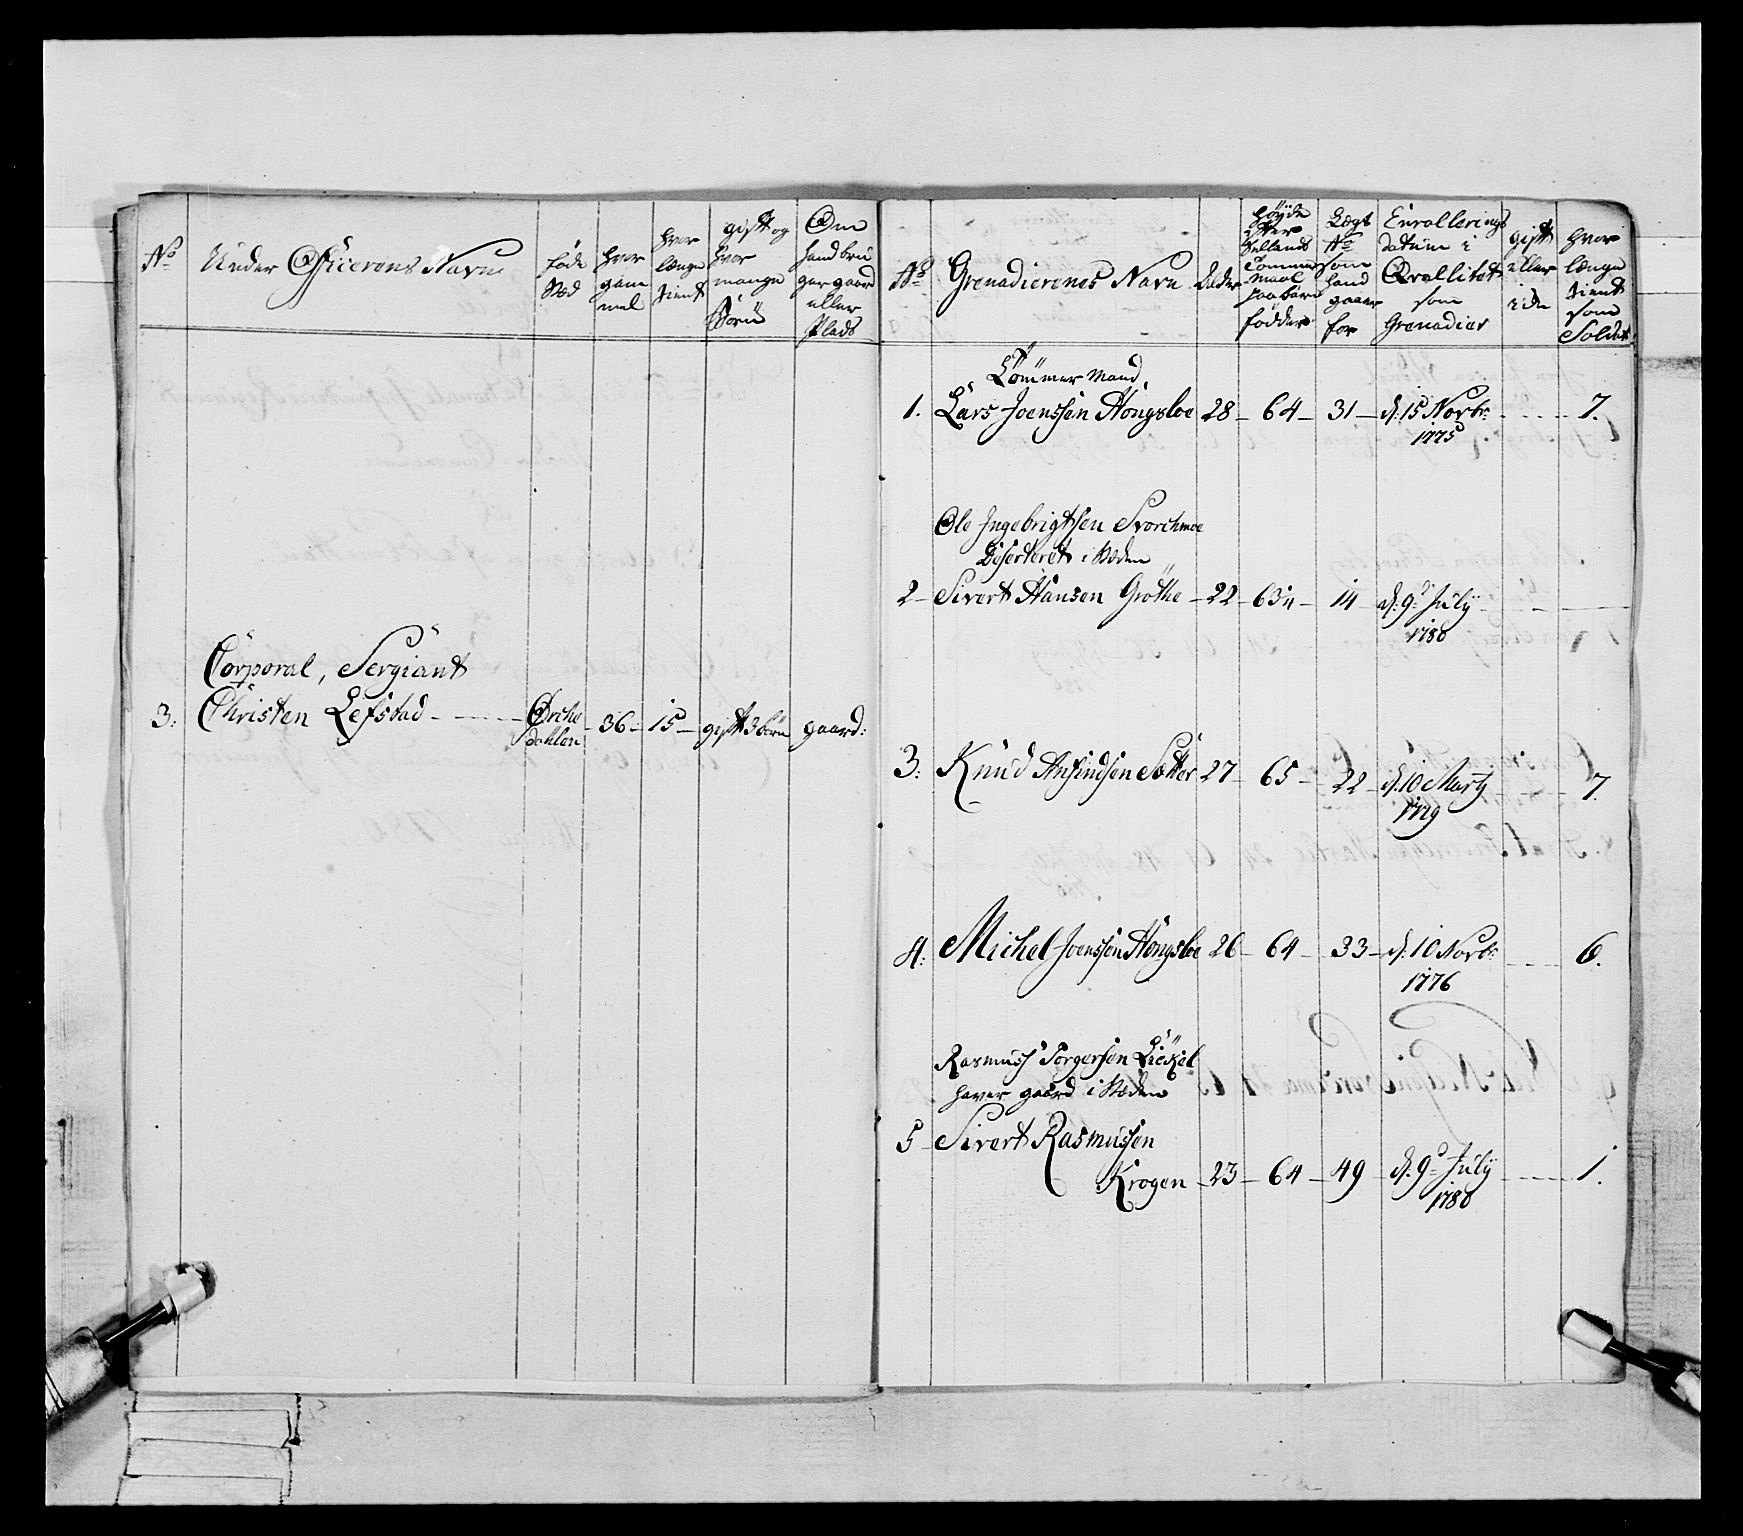 No
Under Officerens Navn
føde Stæd
hvor gam mel
hvor længe tient
gift og hvor mange Børn
Om hand bru ger gaard eller Plads
Corporal, Sergiant
3: Christen Lefstad - Orche dahlen - 36 - 15 - gift 3 børn gaard:
No
Grenadierenes Navn
Alder
Høyde efter Sellands Tommer maal paa bare fødder
Lægs No som hand gaaer for
Enrollerings datum i Qvallitet som Grenadier
gift eller ide
hvor længe tient som Soldat
Tømmer Mand,
1. Lars Joenssen Hongsloe 28 - 64 - 31 - d: 15 Novbr: 1775 - 7.
Ole Ingebrigtsen Storchmoe
Deserteret i Steden
2 - Sivert Hansen Grøthe - 22 - 63½ - 14 - d: 9de July 1780
3: Knud Anfindsen Sætter 27 - 65 - 22 - d: 10 Marty 1779 - 7.
4: Michel Joenssen Hongsloe 26 - 64 - 33 - d: 10 Novbr: 1776 - 6.
Rasmus Torgersen Lickel
haver gaard i Steden
5 - Sivert Rasmussen
Krogen - 23 - 64 - 49 - d: 9de July 1780 - 1.